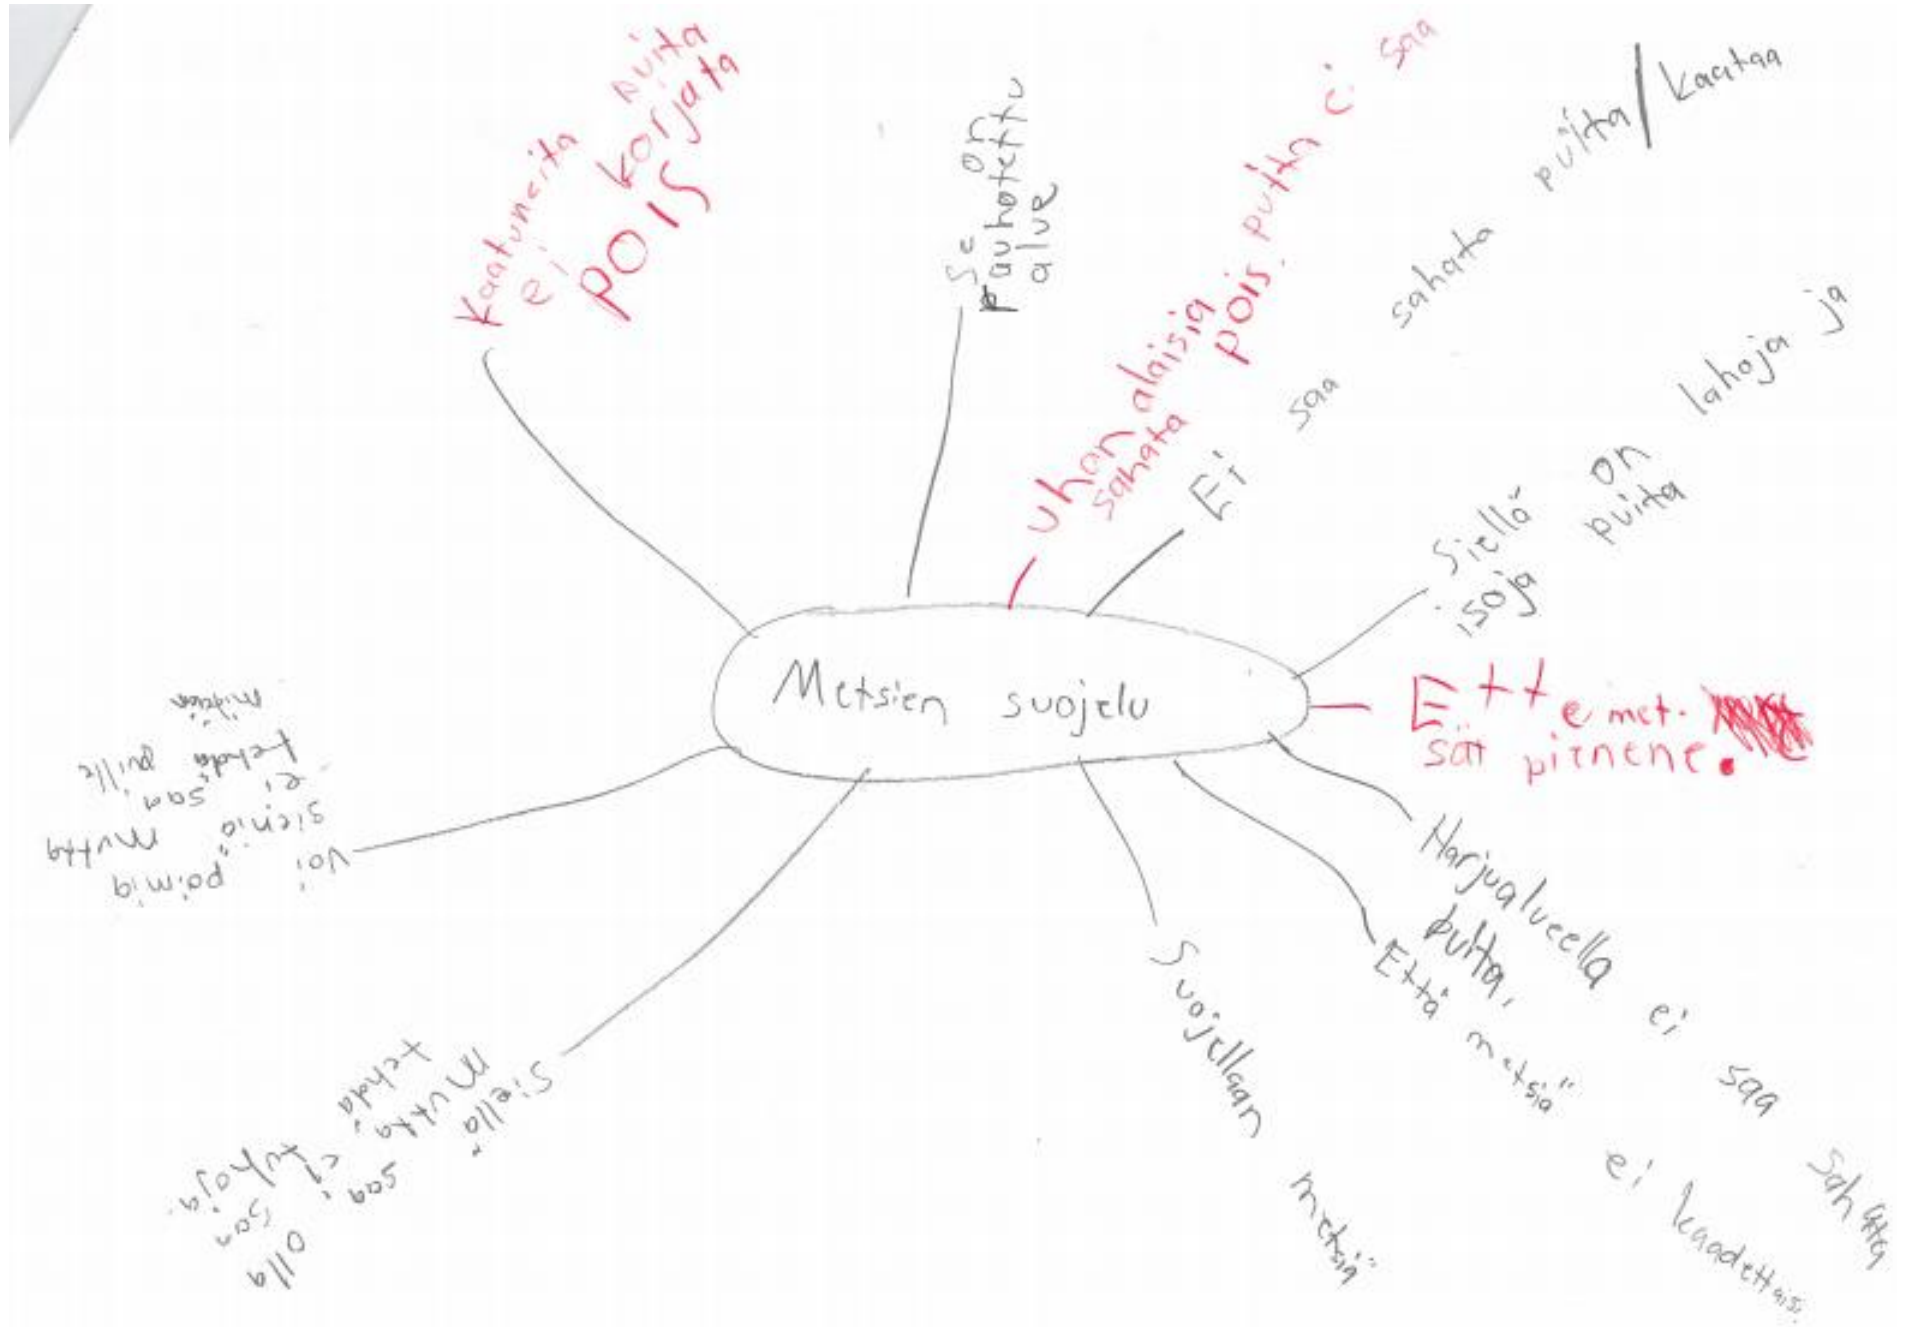 Metsien suojelu
Kaatuneita puita
ei korjata
POIS
Se on
rauhotettu
alue
uhan alaisia puita ei saa
sahata pois.
Ei saa sahata puita/kaataa
Siellä on lahoja ja
isoja puita
Ette met-
sät pienene.
Harjualueella ei saa sahata
puita,
Että metsiä ei kaadettaisi
Suojellaan metsiä
Siellä saa olla
Mutta ei saa
tehdä tuhoja.
Voi poimia
sieniä mutta
ei saa
tehdä puille
mitään